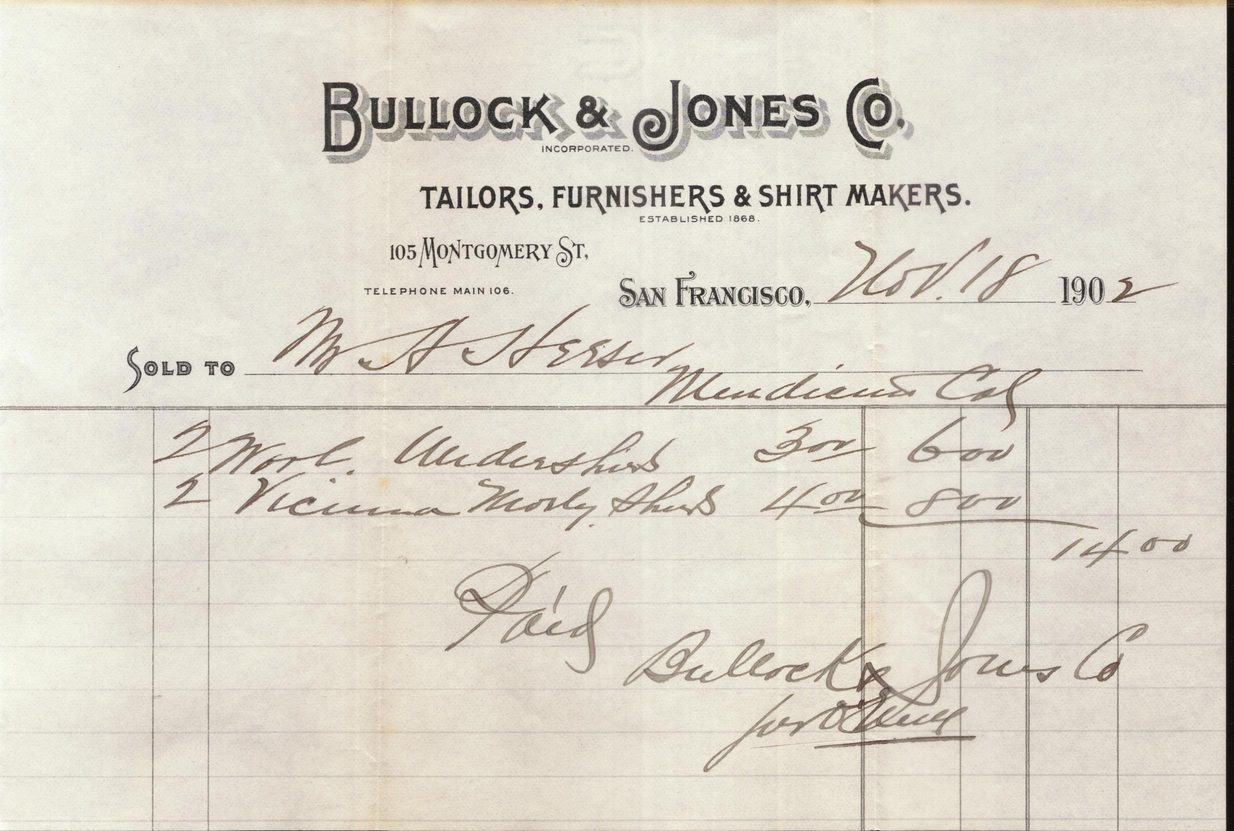 BULLOCK & JONES CO.
INCORPORATED.
TAILORS, FURNISHERS & SHIRT MAKERS.
ESTABLISHED 1868.
105 MONTGOMERY ST,
TELEPHONE MAIN 106.
SAN FRANCISCO, Nov. 18 1902
SOLD TO Mr A Heeser
Cal
2 Undershirts 3 00 6 00
2 Vicuna Shirts 4 00 8 00
14 00
Paid
Bullock & Jones Co
per